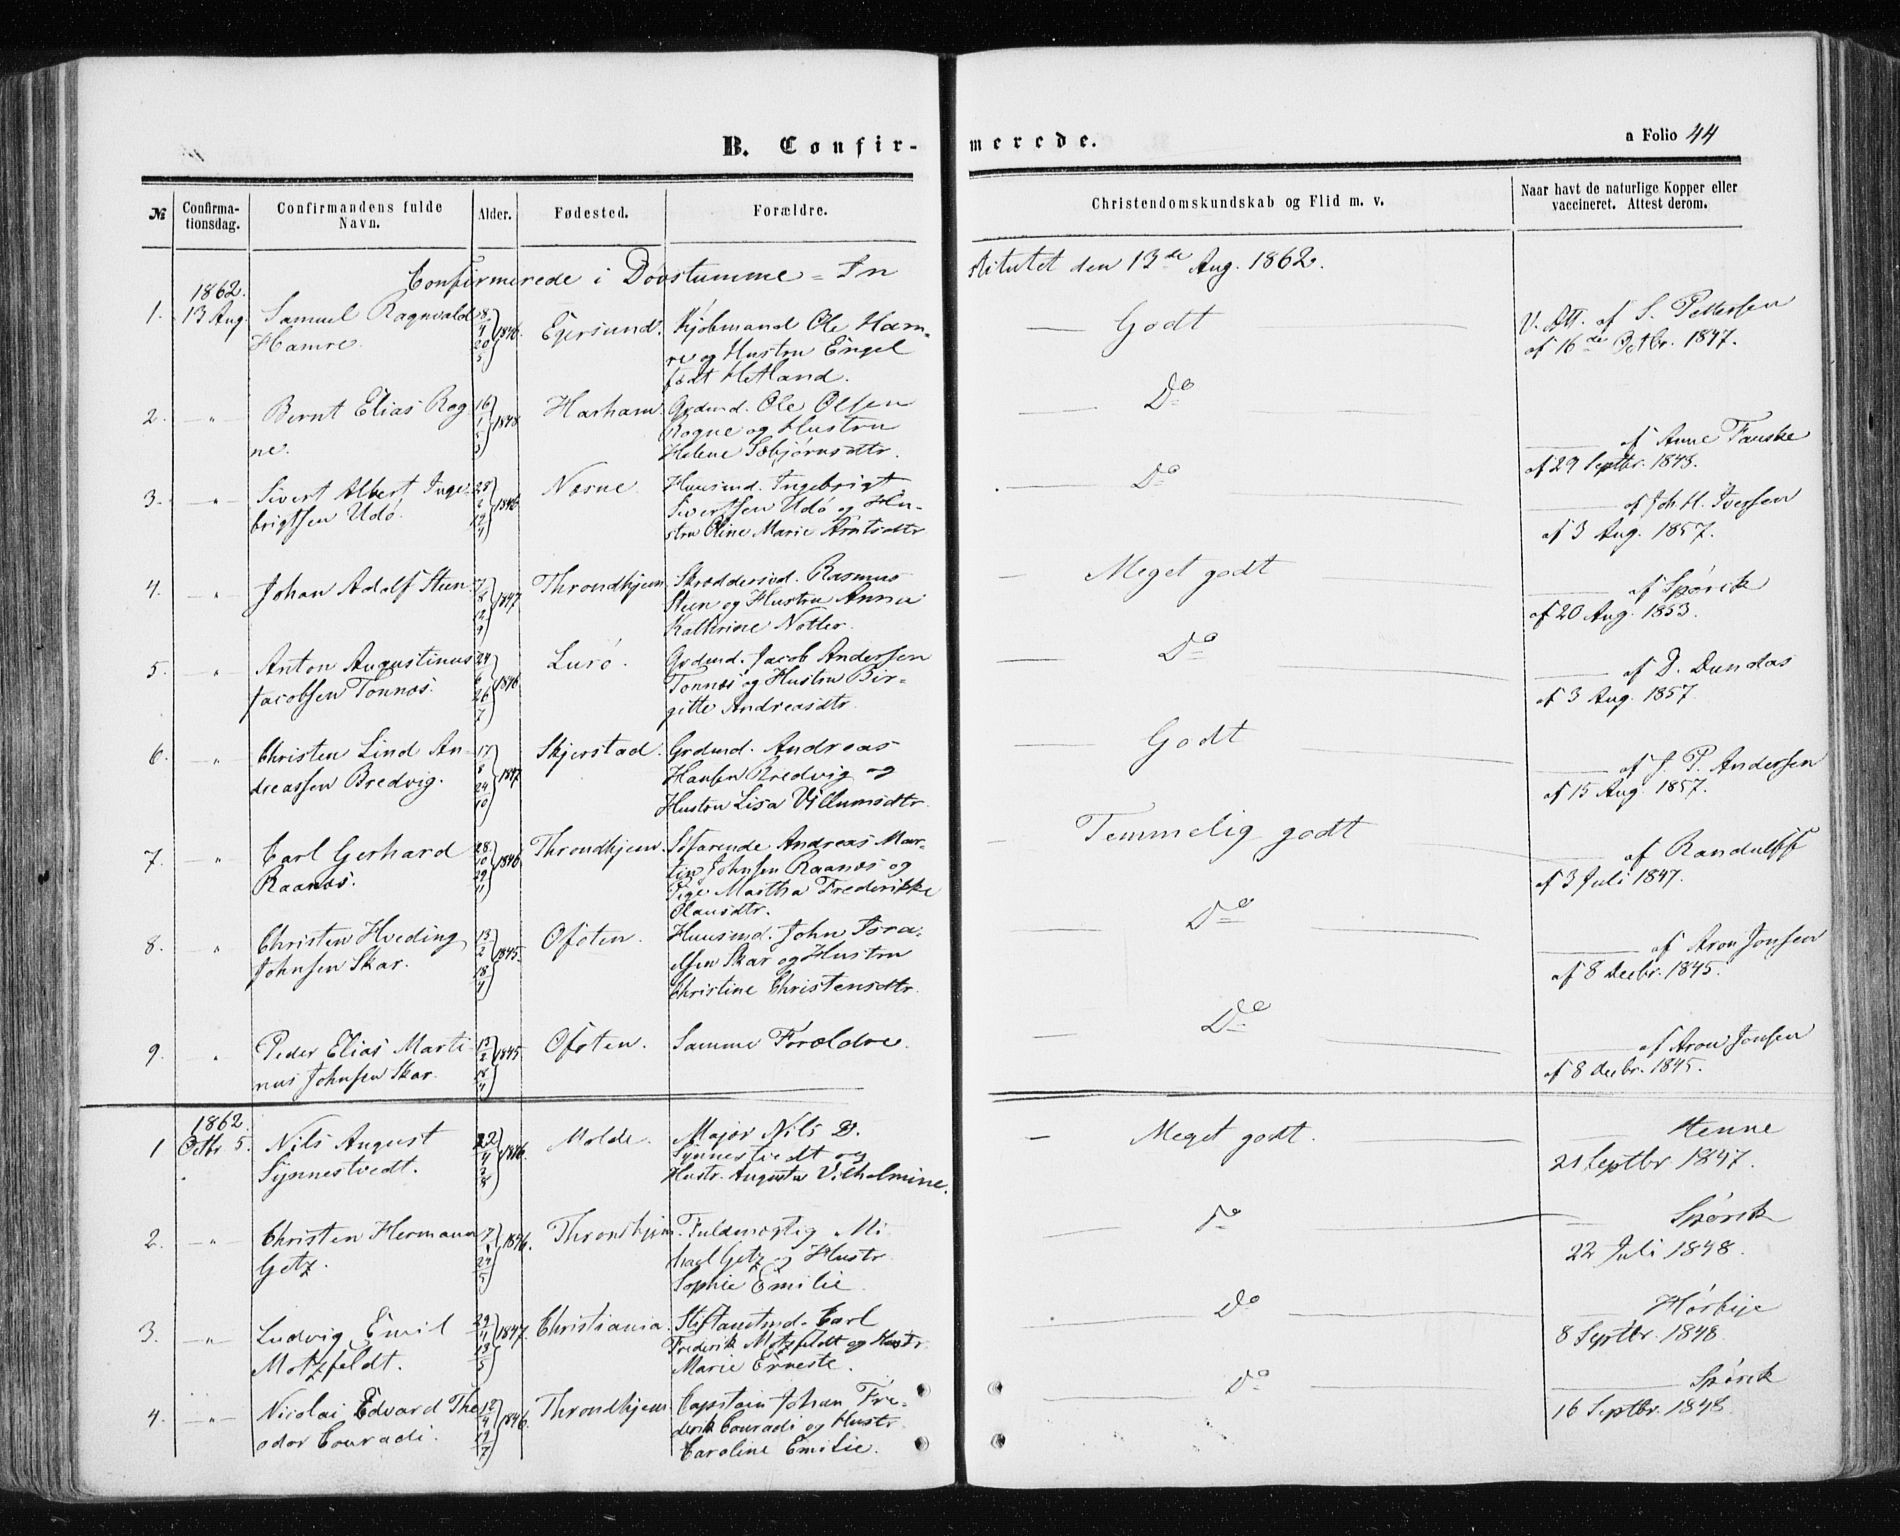 B. Confir-
merede.
a Folio 44
№
Confirma-
tionsdag.
Confirmandens fulde
Navn.
Alder.
Fødested.
Forældre.
Christendomskundskab og Flid m. v.
Naar havt de naturlige Kopper eller
vaccineret. Attest derom.
Confirmerede i Døvstumme-In
stitutet den 13de Aug. 1862.
1862.
1. 13 Aug. Samuel Ragnvald
Hamre.
1846.
Egersund.
Kjøbmand Ole Ham-
re og Hustru Engel
født Hetland.
Godt
V. Att. af S. Pettersen
af 16de Octbr. 1847.
2. -"- Bernt Elias Rog
ne.
16/1 1848
Harham.
Grdmd. Ole Olsen
Rogne og Hustru
Helene Sebjørnsdtr.
Do
af Anne Fauske
af 29 Septbr. 1848.
3. -"- Sivert Albert Inge-
brigtsen Udø.
28/2 19/4 1846
Næsne.
Huusmd. Ingebrigt
Sivertsen Udø og Hu-
stru Oline Marie Arntsdtr
Do
af Joh. H. Iversen
af 3 Aug. 1857.
4. -"- Johan Adolf Steen
1847
Throndhjem.
Skræddersvd. Rasmus
Steen og Hustru Anna
Kathrine Notler.
Meget godt
af Spørck
af 20 Aug. 1853.
5. -"- Anton Augustinus
Jacobsen Tonnæs.
24/6 26/7 1846
Lurø.
Grdmd. Jacob Andersen
Tonnæs og Hustru Bir-
gitte Andreasdtr.
Do
af D. Dundas
af 3 Aug. 1857.
6. -"- Christen Lind An-
dreassen Bredvig.
17/8 24/10 1847
Skjerstad.
Grdmd. Andreas
Hansen Bredvig og
Hustru Lisa Villumsdtr.
Godt
af J. P. Andersen
af 15 Aug. 1857.
7. -"- Carl Gerhard
Raanæs.
28/10 29/11 1846
Throndhjem.
Søfarende Andreas Mar-
tin Johnsen Raanæs og
Pige Martha Frederikke
Olausdtr.
Temmelig godt
af Randulff
af 3 Juli 1847.
8. " Christen Hveding
Johnsen Skar.
13/2 18/4 1845.
Ofoten.
Huusmd. John Isra-
elsen Skar og Hustru
Christine Christensdtr.
Do
af Aron Jonsen
af 8 Decbr. 1845.
9. " Peder Elias Marti-
nus Johnsen Skar.
13/2 18/4 1845.
Ofoten.
Samme Forældre.
Do
af Aron Jonsen
af 8 Decbr. 1845.
1862.
1 Octbr 5. Nils August
Synnestvedt.
1846.
Molde.
Major Nils D.
Synnestvedt og
Hustr. Augusta Vilhelmine.
Meget godt.
Henne
21 Septbr. 1847.
2. -"- Christen Hermann
Getz.
1846.
Throndhjem.
Fuldmægtig Mi-
hael Getz og Hustr.
Sophie Emilie.
Do
Spørck
22 Juli 1848.
3. -"- Ludvig Emil
Motzfeldt.
29/4 13/5 1847.
Christiania.
Stiftamtmd. Carl
Frederik Motzfeldt og Hustr.
Marie Erneste.
Do
Hørbye
8 Septbr. 1848.
4. -"- Nicolai Edvard The
odor Conradi.
12/4 19/7 1846.
Throndhjem
Captain Johan Fre-
derik Conradi og Hustr.
Caroline Emilie.
Do
Spørck
16 Septbr. 1848.